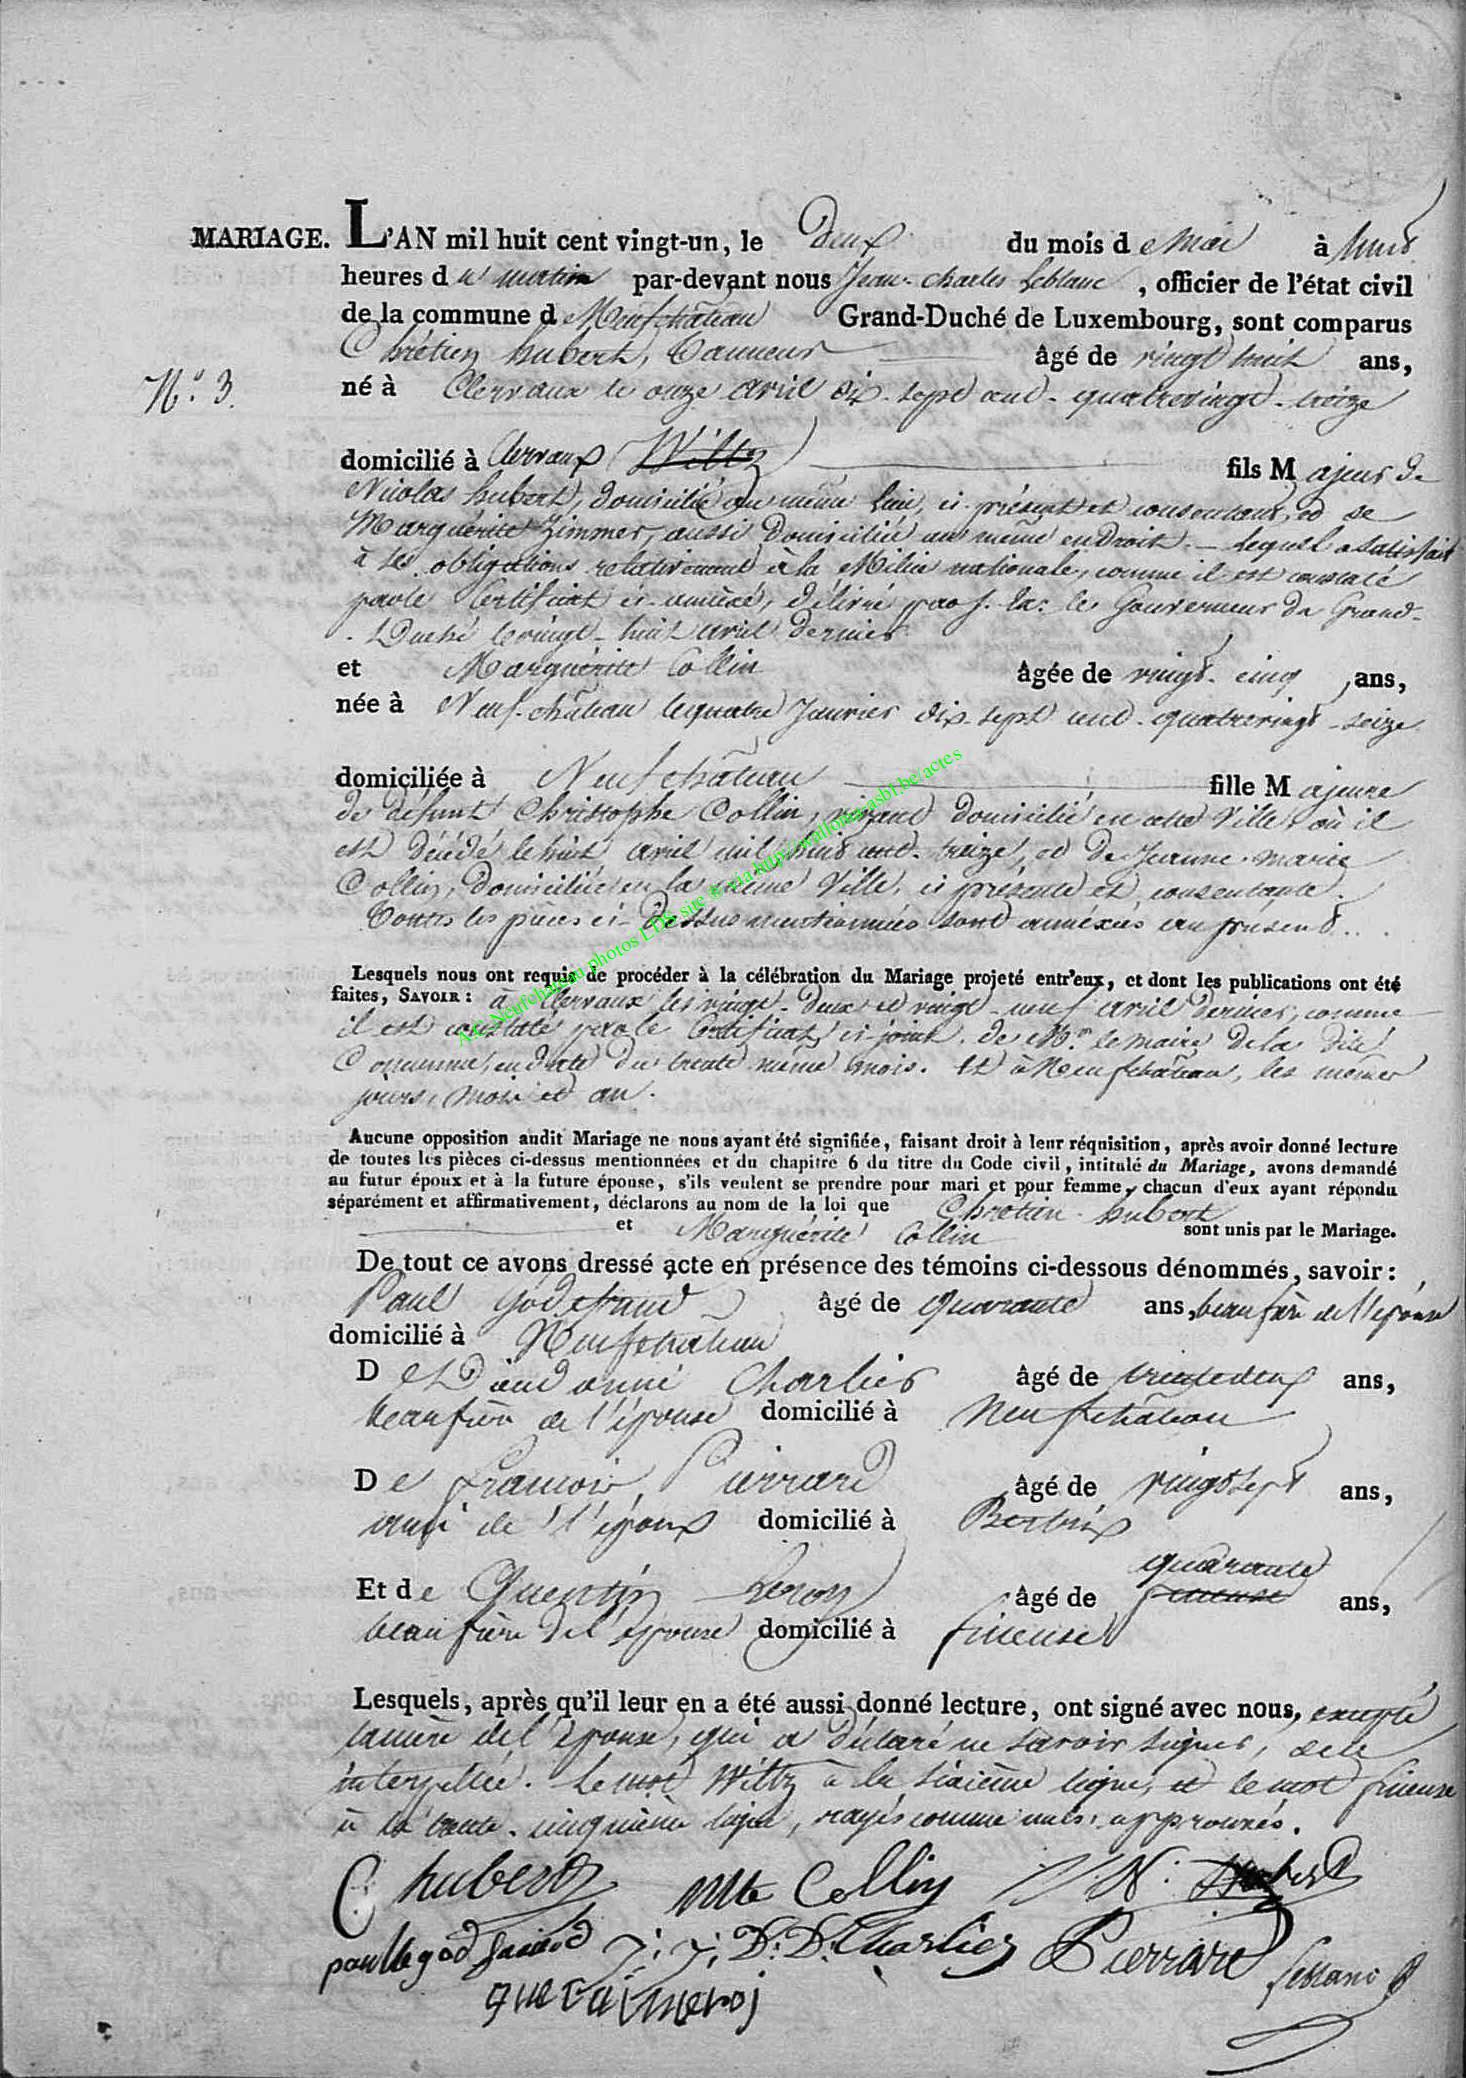 MARIAGE. L'AN mil huit cent vingt-un, le Deux du mois de Mai à huit
heures du matin par-devant nous Jean-Charles Leblanc, officier de l'état civil
de la commune de Neufchâteau Grand-Duché de Luxembourg, sont comparus
Chrétien hubert, Tanneur âgé de vingt huit ans,
N.° 3.
né à Clervaux le onze avril dix-sept cent-quatrevingt-treize
domicilié à Clervaux Wiltz fils Majeur de
Nicolas hubert, domicilié au même lieu, ci-présent et consentant, et de
Marguérite Zimmer, aussi domiciliée au même endroit. - lequel a satisfait
à ses obligations relativement à la Milice nationale, comme il est constaté
par le Certificat ci-annéxé, délivré par le Gouverneur du Grand-
Duché le vingt-huit avril dernier
et Marguérite Collin âgée de vingt-cinq ans,
née à Neufchâteau le quatre Janvier dix-sept cent-quatrevingt-seize
domiciliée à Neufchâteau fille Majeure
de défunt Christophe Collin, vivant domicilié en cette Ville, où il
est décédé le huit avril mil huit cent-treize, et de Jeanne-marie
Collin, domiciliée en la même Ville, ci présente et consentante.
Toutes les pièces ci-dessus mentionnées sont annéxées au présent.
Lesquels nous ont requis de procéder à la célébration du Mariage projeté entr'eux, et dont les publications ont été
faites, SAVOIR: à Clervaux les vingt-deux et vingt-neuf avril dernier, comme
il est constaté par le Certificat, ci-joint, de Mr. le maire de la dite
Commune, en date du trente même mois. Et à Neufchâteau, les mêmes
jours, mois et an.
Aucune opposition audit Mariage ne nous ayant été signifiée, faisant droit à leur réquisition, après avoir donné lecture
de toutes les pièces ci-dessus mentionnées et du chapitre 6 du titre du Code civil, intitulé du Mariage, avons demandé
au futur époux et à la future épouse, s'ils veulent se prendre pour mari et pour femme, chacun d'eux ayant répondu
séparément et affirmativement, déclarons au nom de la loi que Chrétien hubert
et Marguérite Collin sont unis par le Mariage.
De tout ce avons dressé acte en présence des témoins ci-dessous dénommés, savoir:
Paul Godefraud âgé de quarante ans, beaufrère de l'épouse
domicilié à Neufchâteau
De Dieudonné Charlier âgé de trentedeux ans,
beaufrère de l'épouse domicilié à Neufchâteau
De François Pierrard âgé de vingtsept ans,
ami de l'époux domicilié à Bertrix
quarante
Et de Quentin Leroy âgé de fineuse ans,
beaufrère de l'épouse domicilié à fineuse
Lesquels, après qu'il leur en a été aussi donné lecture, ont signé avec nous, excepté
la mère de l'épouse, qui a déclaré ne savoir signer, de ce
interpellée. Le mot Wiltz à la sixième ligne, et le mot fineuse
à la trente-cinquième ligne, rayés comme nuls, approuvés.
C hubert Mte Collin N. Hubert
J. J. D. D. Charlier Pierrard Leblanc
A.C. Neufchateau photos LDS site & via http://wallonia-asbl.be/actes